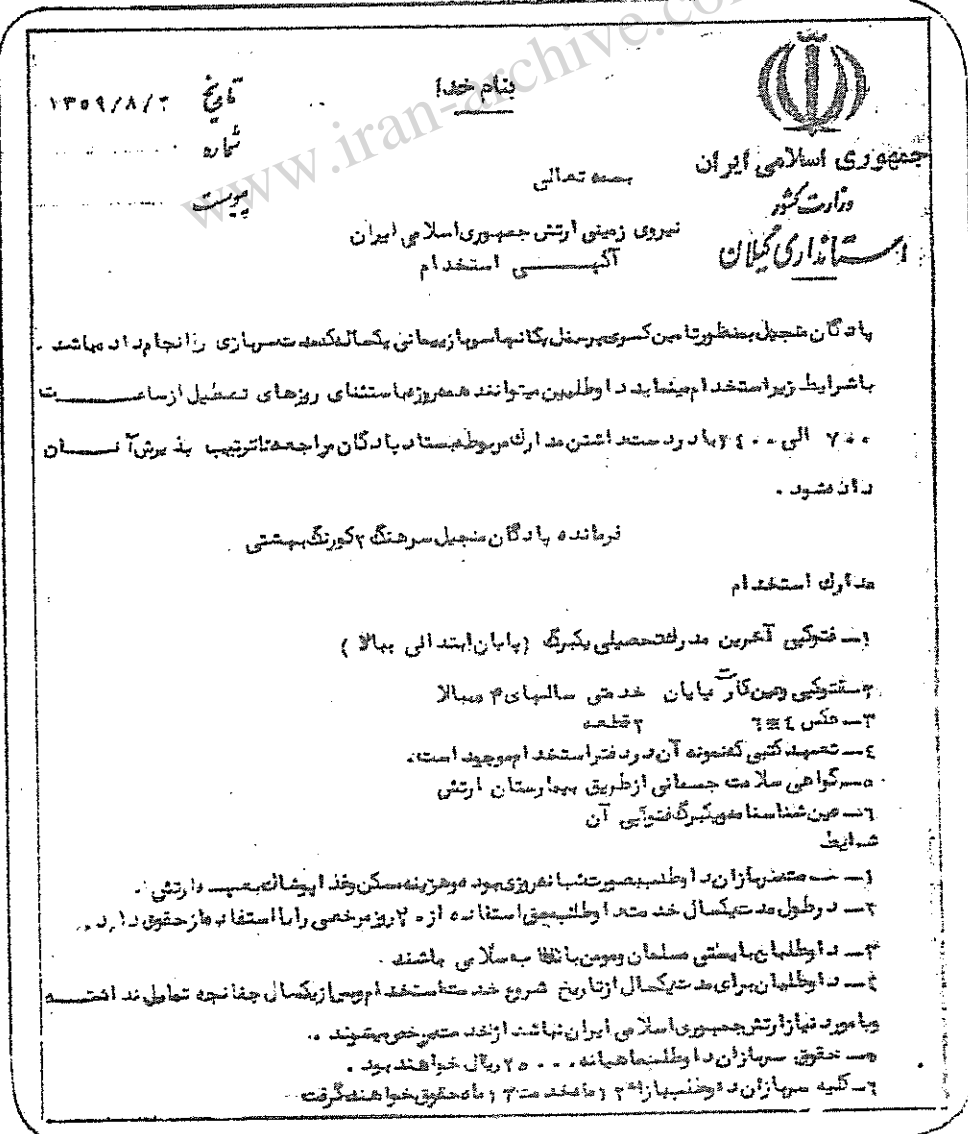 www.iran-archive.com
بنام خدا
تاریخ ۱۳۵۹/۸/۲
شماره
پیوست
جمهوری اسلامی ایران
وزارت کشور
استانداری گیلان
بسمه تعالی
نیروی زمینی ارتش جمهوری اسلامی ایران
آگهی استخدام
پادگان منجیل بمنظور تامین کسری پرسنل یگانها سرباز پیمانی یکساله که مدت سربازی را انجام داده باشد .
با شرایط زیر استخدام مینماید داوطلبین میتوانند همه روزه باستثنای روزهای تعطیل از ساعت
۷۰۰ الی ۲۴۰۰ با در دست داشتن مدارک مربوطه بستاد پادگان مراجعه تا ترتیب پذیرش آنان
داده شود .
فرمانده پادگان منجیل سرهنگ ۲ بهشتی
مدارک استخدام
۱ـ فتوکپی آخرین مدرک تحصیلی یکبرگ (پایان ابتدائی ببالا )
۲ـ فتوکپی و عین کارت پایان خدمتی سالهای ۴ ببالا
۳ـ عکس ٤×٦ ۲ قطعه
٤ـ تعهد کتبی که نمونه آن در دفتر استخدام موجود است .
۵ـ گواهی سلامت جسمانی از طریق بیمارستان ارتش
٦ـ عین شناسنامه و یکبرگ فتوکپی آن
شرایط
۱ـ خدمت سربازان داوطلب بصورت شبانه روزی بوده و هزینه مسکن و غذا و پوشاک بعهده ارتش .
۲ـ در طول مدت یکسال خدمت داوطلب حق استفاده از ۲۰ روز مرخصی را با استفاده از حقوق دارد .
۳ـ داوطلبان بایستی مسلمان و مومن با انقلاب اسلامی باشند .
٤ـ داوطلبان برای مدت یکسال از تاریخ شروع خدمت استخدام و پس از یکسال چنانچه تمایل نداشته
و یا مورد نیاز ارتش جمهوری اسلامی ایران نباشد از خدمت مرخص میشوند .
۵ـ حقوق سربازان داوطلب ماهیانه ۲۵۰۰۰ ریال خواهند بود .
٦ـ کلیه سربازان داوطلب بازاء ۱۲ ماه خدمت ۱۳ ماه حقوق خواهند گرفت